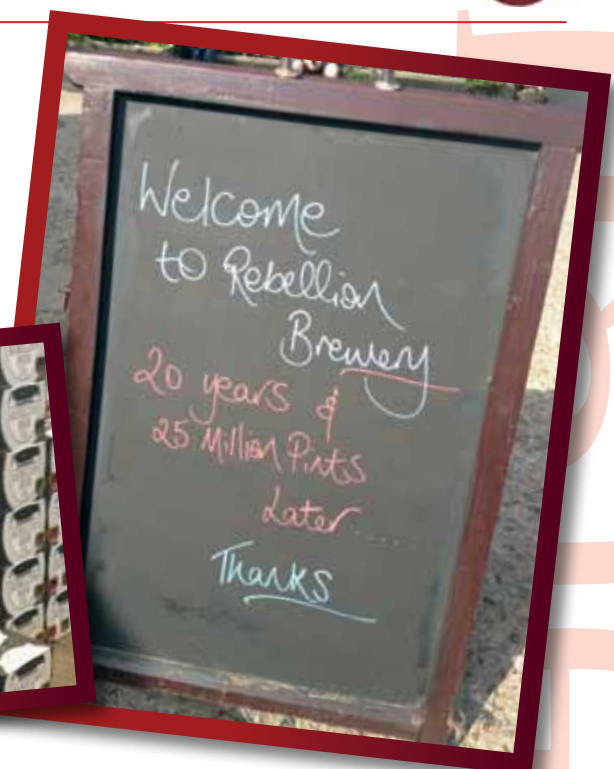 Welcome
to Rebellion
Brewery
20 years &
25 Million Pints
Later.....
Thanks